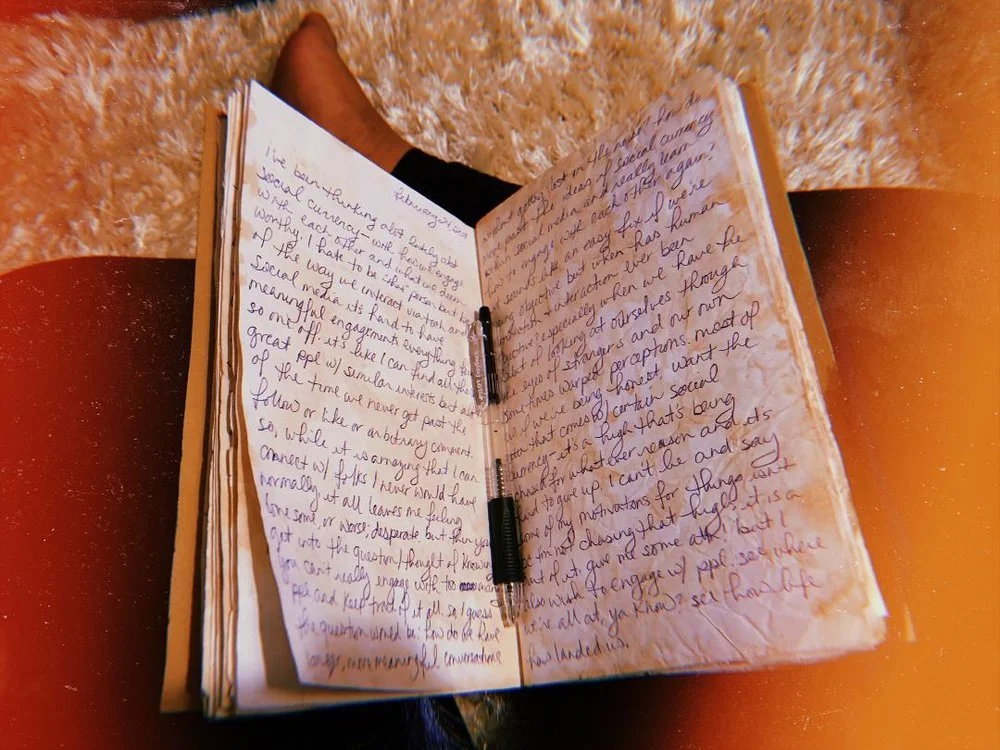 February 24, 2021
I've been thinking alot lately abt
social currency - with how we engage
with each other and what we deem
worthy. I hate to be *that* person but
of the way we interact via tech and
social media it's hard to have
meaningful engagements. everything
so one off. it's like I can find all
great ppl w/ similar interests but
of the time we never get past the
follow or like or arbitrary comment.
so, while it is amazing that I can
connect w/ folks I never would have
normally, it all leaves me feeling
lonesome, or worse, desperate but then you
get into the question/thought of knowing
you can't really engage with too many
ppl and keep track of it all. so I guess
the question would be: how do we have
longer, more meaningful conversations
without getting lost in the how do
we move past the ideas of social currency
within social media and really learn
how to engage with each other again?
sounds like an easy fix if we're
being objective but when has human
interaction ever been
especially when we have the
of looking at ourselves through
eyes of strangers and our own
sometimes warped perceptions. most of
us, if we're being honest, want the
that comes w/ certain social
currency - it's a high that's being
chased for whatever reason and it's
hard to give up. I can't lie and say
some of my motivations for things isn't
I'm not chasing that high. it is a
out of it. give me some attn! but I
also wish to engage w/ ppl. see where
we're all at, ya know? see how life
has landed us.